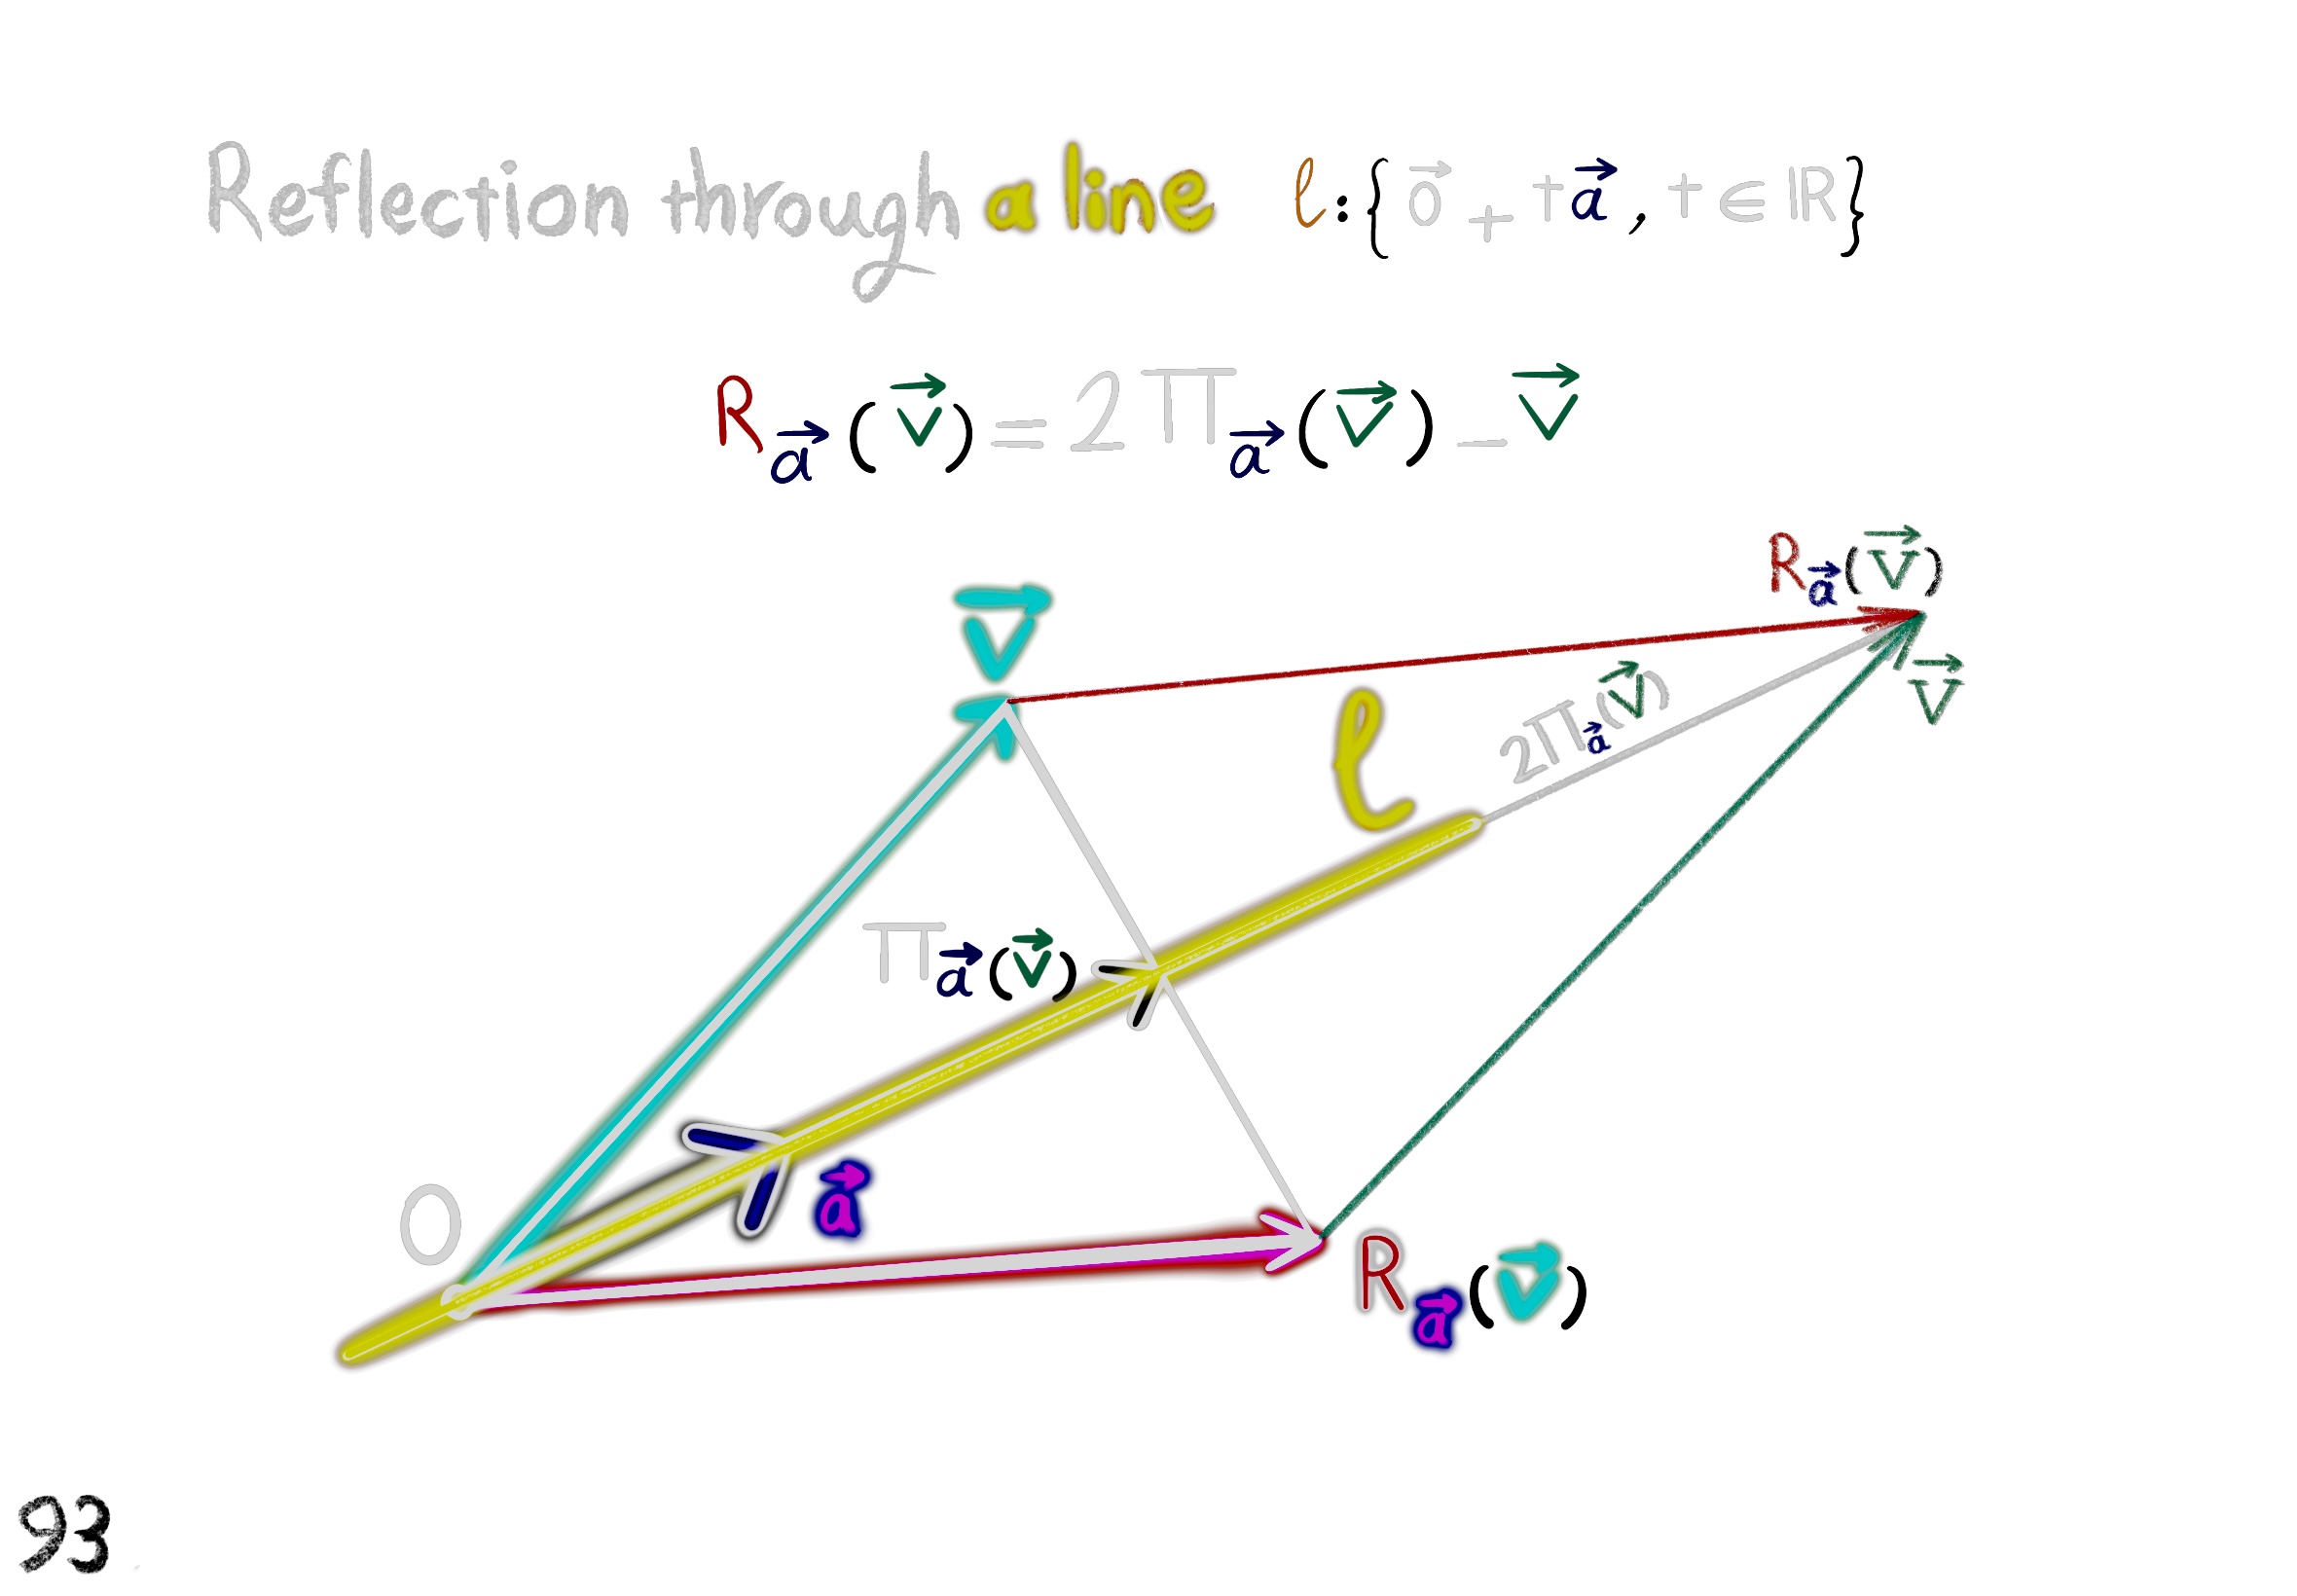 Reflection through a line ℓ:{0⃗ + ta⃗, t∈ℝ}
R_a⃗(v⃗) = 2Π_a⃗(v⃗) − v⃗
R_a⃗(v⃗)
v⃗
2Π_a⃗(v⃗)
v⃗
ℓ
Π_a⃗(v⃗)
a⃗
O
R_a⃗(v⃗)
93